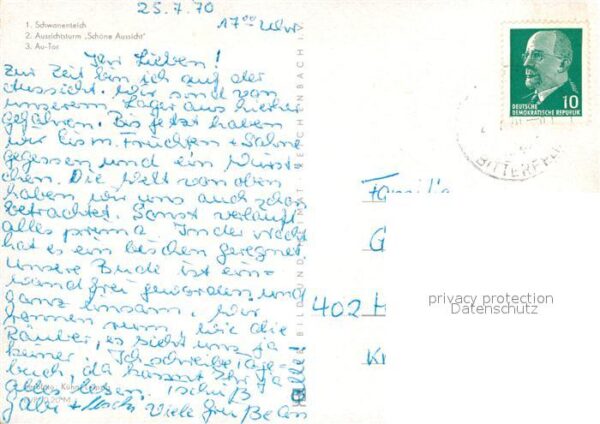 25.7.70
17⁰⁰ Uhr
1. Schwanenteich
2. Aussichtsturm „Schöne Aussicht"
3. Au-Tor
Ihr Lieben!
Zur Zeit bin ich auf der
Aussicht. Wir sind von
unserem Lager aus hierher
gefahren. Bis jetzt haben
wir Eis m. Früchten + Sahne
gegessen und ein Würst-
chen. Die Welt von oben
haben wir uns auch schon
betrachtet. Sonst verläuft
alles prima. In der Nacht
hat es ein bischen geregnet.
Unsere Bude ist ein-
wandfrei geworden und
ganz einsam. Wir
nun wie die
Räuber, es sieht uns ja
keiner. Ich schreibe Tage-
buch, da kannst Ihr ja
alles lesen. Tschüß
Gabi + Viele Grüße an
alle!
BILD UND HEIMAT REICHENBACH I. V.
DEUTSCHE
DEMOKRATISCHE REPUBLIK
10
BITTERFELD
Familie
G
402 H
privacy protection
Datenschutz